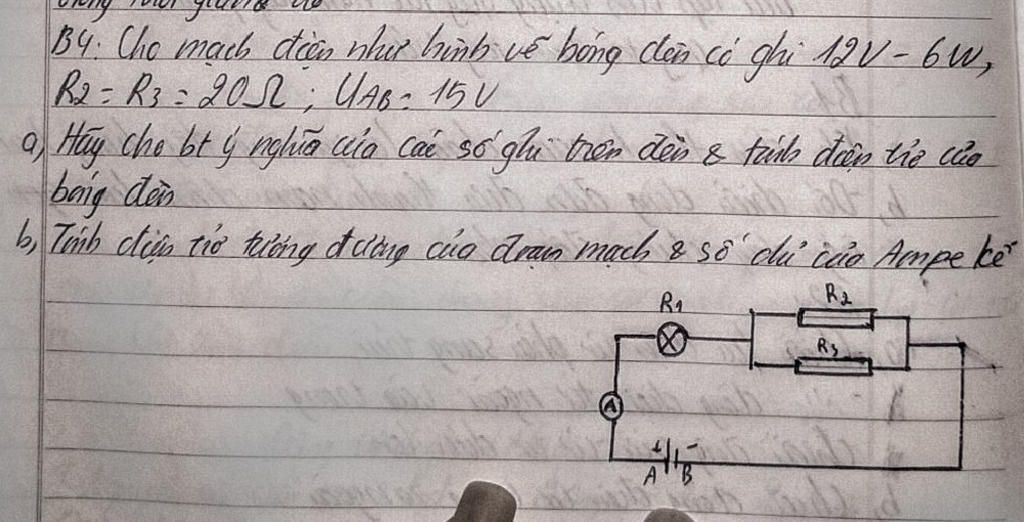 B4. Cho mạch điện như hình vẽ bóng đèn có ghi 12V - 6W,
R2 = R3 = 20Ω ; UAB = 15V
a, Hãy cho bt ý nghĩa của các số ghi trên đèn & tính điện trở của
bóng đèn
b, Tính điện trở tương đương của đoạn mạch & số chỉ của Ampe kế
R1
R2
R3
A
+ -
A B